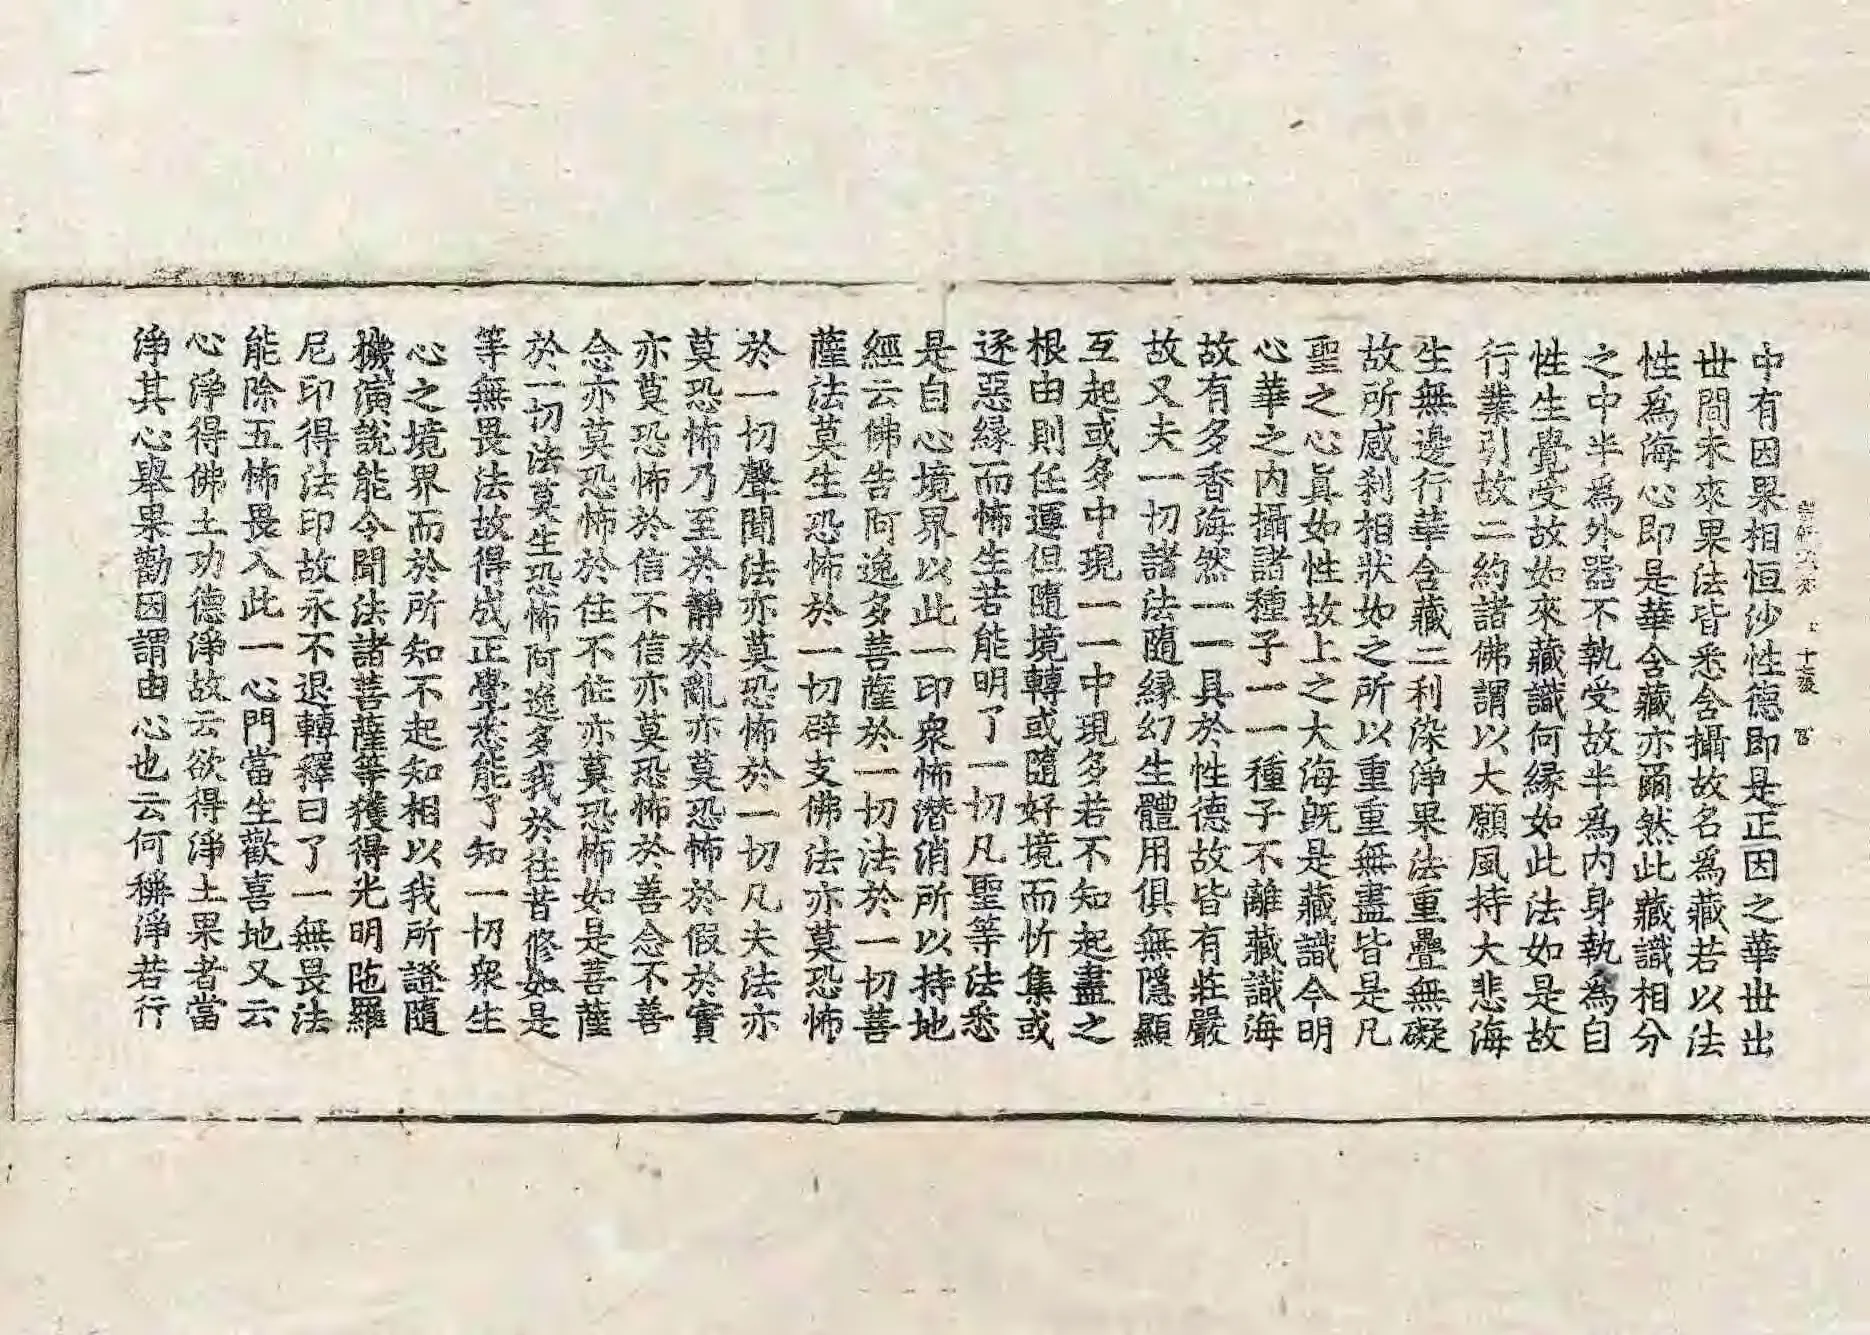 中有因果相恒沙性德即是正因之華世出
世間未來果法皆悉含攝故名爲藏若以法
性爲海心即是華含藏亦爾然此藏識相分
之中半爲外器不執受故半爲内身執爲自
性生覺受故如來藏識何縁如此法如是故
行業引故二約諸佛謂以大願風持大悲海
生無邊行華含藏二利染淨果法重疊無礙
故所感刹相狀如之所以重重無盡皆是凡
聖之心眞如性故上之大海旣是藏識今明
心華之内攝諸種子一一種子不離藏識海
故有多香海然一一具於性德故皆有莊嚴
故又夫一切諸法隨縁幻生體用俱無隱顯
互起或多中現一一中現多若不知起盡之
根由則任運但隨境轉或隨好境而忻集或
逐惡縁而怖生若能明了一切凡聖等法悉
是自心境界以此一印衆怖潛消所以持地
經云佛告阿逸多菩薩於一切法於一切善
薩法莫生恐怖於一切辟支佛法亦莫恐怖
於一切聲聞法亦莫恐怖於一切凡夫法亦
莫恐怖乃至於靜於亂亦莫恐怖於假於實
亦莫恐怖於信不信亦莫恐怖於善念不善
念亦莫恐怖於住不住亦莫恐怖如是菩薩
於一切法莫生恐怖阿逸多我於往昔修如是
等無畏法故得成正覺悉能了知一切衆生
心之境界而於所知不起知相以我所證隨
機演說能令聞法諸菩薩等獲得光明陁羅
尼印得法印故永不退轉釋曰了一無畏法
能除五怖畏入此一心門當生歡喜地又云
心淨得佛土功德淨故云欲得淨土果者當
淨其心舉果勸因謂由心也云何稱淨若行